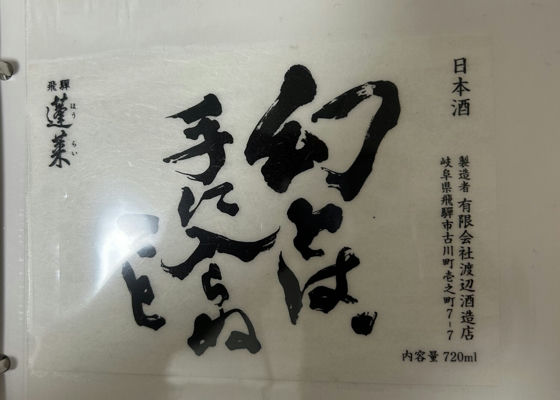 日本酒
製造者 有限会社渡辺酒造店
岐阜県飛騨市古川町壱之町7-7
内容量 720ml
幻とは。
手に入らぬ
こと
飛騨
蓬莱
ほうらい